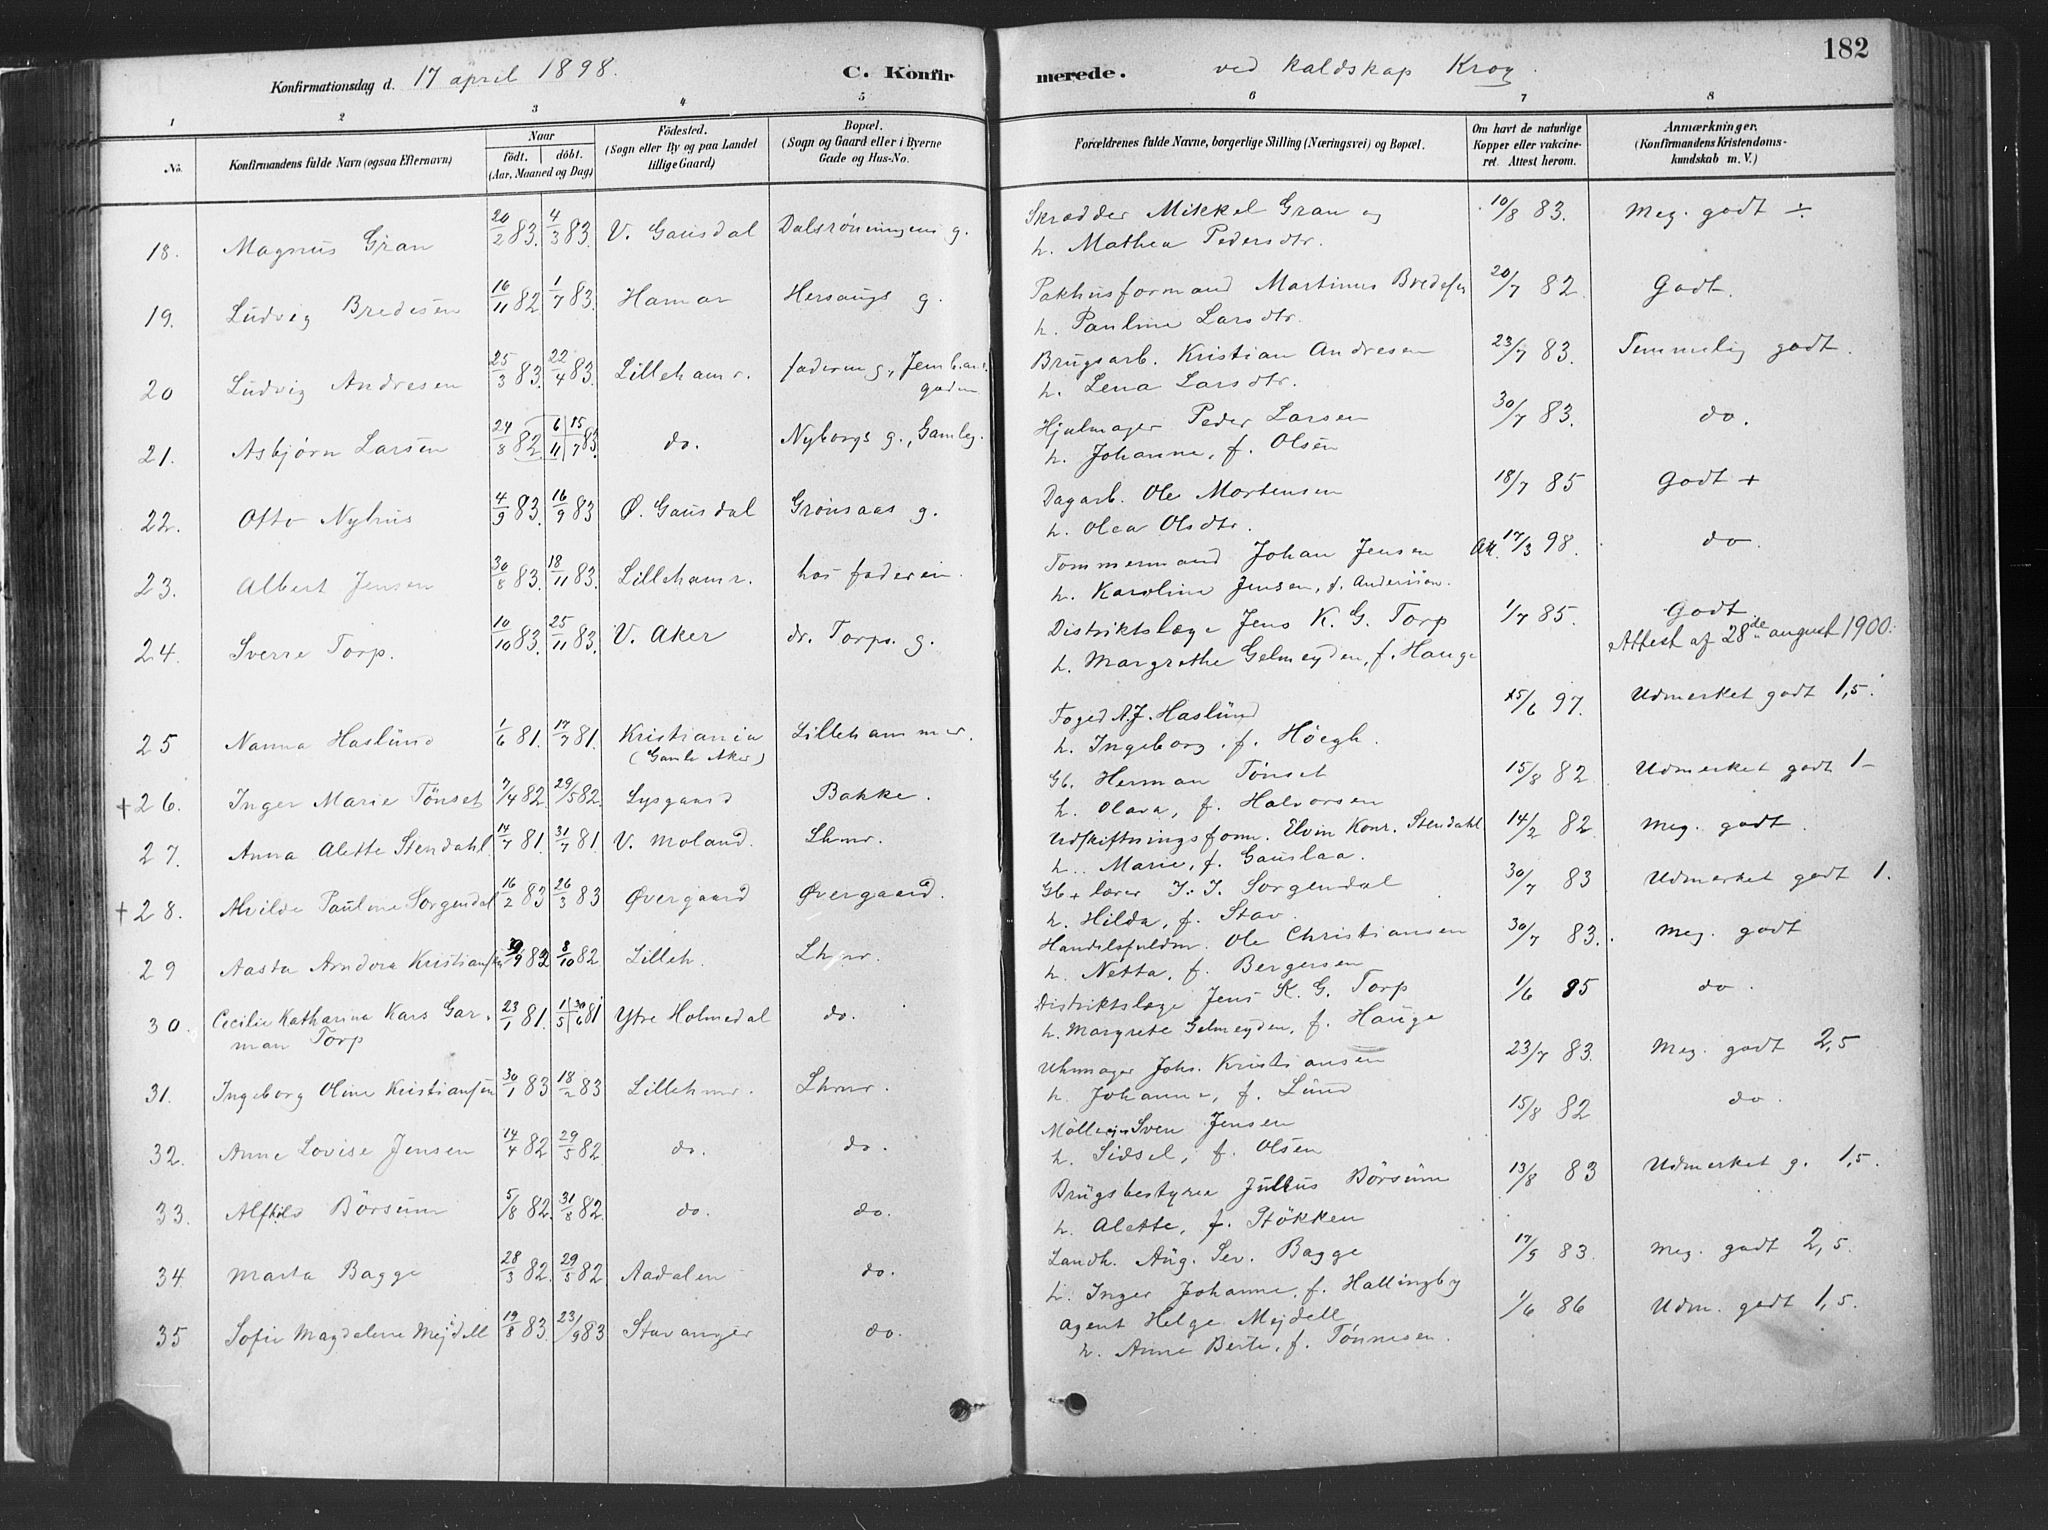 182
Konfirmationsdag d. 17 april 1898. C. Konfirmerede. ved kaldskap Krog.
1 2 3 4 5 6 7 8
No. Konfirmandens fulde Navn (ogsaa Efternavn) Naar födt. döbt. (Aar, Maaned og Dag) Födested. (Sogn eller By og paa Landet tillige Gaard) Bopæl. (Sogn og Gaard eller i Byerne Gade og Hus-No. Forældrenes fulde Navne, borgerlige Stilling (Næringsvei) og Bopæl. Om havt de naturlige Kopper eller vakcineret. Attest herom. Anmærkninger. (Konfirmandens Kristendomskundskab m. V.)
18. Magnus Gran 20/2 83. 4/3 83. V. Gausdal Dalsröningens g. Skrædder Mikkel Gran og 10/8 83. Meg. godt ÷
h. Mathea Pedersdtr.
19. Ludvig Bredesen 16/11 82 1/7 83. Hamar Hersaugs g. Pakhusformand Martinus Bredesen 20/7 82 Godt.
h. Pauline Larsdtr.
20 Ludvig Andresen 25/3 83. 22/4 83. Lillehamr. faderen g., Jernban. gaden Brugsarb. Kristian Andresen 23/7 83. Temmelig godt.
h. Lena Larsdtr.
21. Asbjørn Larsen 24/8 82 6/11 15/7 83. do. Nyborgs g., Gamleg. Hjulmager Peder Larsen 30/7 83. do.
h. Johanne, f. Olsen
22. Otto Nyhus 4/9 83. 16/9 83 Ø. Gausdal Grönsaas g. Dagarb. Ole Mortensen 18/7 85 Godt +
h. Olea Olsdtr.
23. Albert Jensen 30/8 83. 18/11 83. Lillehamr. hos faderen. Tömmermand Johan Jensen Att. 17/3 98. do.
h. Karoline Jensen, f. Anderssen.
24. Sverre Torp. 10/10 83. 25/11 83. V. Aker dr. Torps. g. Distriktslæge Jens K. G. Torp 1/7 85. Godt
h. Margrethe Gelmeyden, f. Hauge Attest af 28de august 1900.
25 Nanna Haslund 1/6 81. 17/7 81. Kristiania (Gamle Aker) Lillehammer. Foged A.J. Haslund 15/6 97. Udmerket godt 1,5.
h. Ingeborg, f. Höegh.
+ 26. Inger Marie Tönset 7/4 82. 29/5 82. Lysgaard Bakke. Gb. Herman Tönset 15/8 82 Udmerket godt 1-
h. Olava, f. Halvorsen
27. Anna Alette Stendahl 14/7 81. 31/7 81. V. Moland. Lhmr. Udskiftningsform. Elvin Konr. Stendahl 14/2 82. Meg. godt.
h. Marie, f. Gauslaa.
+ 28. Alvilde Pauline Sorgendal 16/2 83 26/3 83 Øvergaard Øvergaard. Gb + lærer J. J. Sorgendal 30/7 83 Udmerket godt 1.
h. Hilda, f. Stav.
29 Aasta Arndora Kristiansen 82 8/10 82 Lilleh. Lhmr. Handelsfuldm. Ole Christiansen 30/7 83. Meg. godt
h. Netta, f. Bergersen
30. Cecilie Katharina Kars Garman Torp 23/1 81. 1/5 30/6 81 Ytre Holmedal do. Distriktslæge Jens K. G. Torp 1/6 85 do.
h. Margrete Gelmeyden, f. Hauge
31. Ingeborg Oline Kristiansen 30/1 83 18/2 83 Lillehmr. Lhmr. Uhrmager Johs. Kristiansen 23/7 83. Meg. godt 2,5
h. Johanne, f. Lund
32. Anne Lovise Jensen 14/4 82 29/5 82 do. do. Möller Sven Jensen 15/8 82 do.
h. Sidsel, f. Olsen
33. Alfhild Börsum 5/8 82. 31/8 82. do. do. Brugsbestyrer Julius Börsum 13/8 83 Udmerket g. 1,5.
h. Alette, f. Stökken
34. Marta Bagge 28/3 82. 29/5 82 Aadalen do. Landh. Aug. Sev. Bagge 17/9 83. Meg. godt 2,5.
h. Inger Johanne, f. Hallingby
35 Sofie Magdalene Mejdell 19/8 83. 23/9 83 Stavanger do. Agent Helge Mejdell 1/6 86 Udm. godt 1,5.
h. Anne Berte, f. Tönnesen.